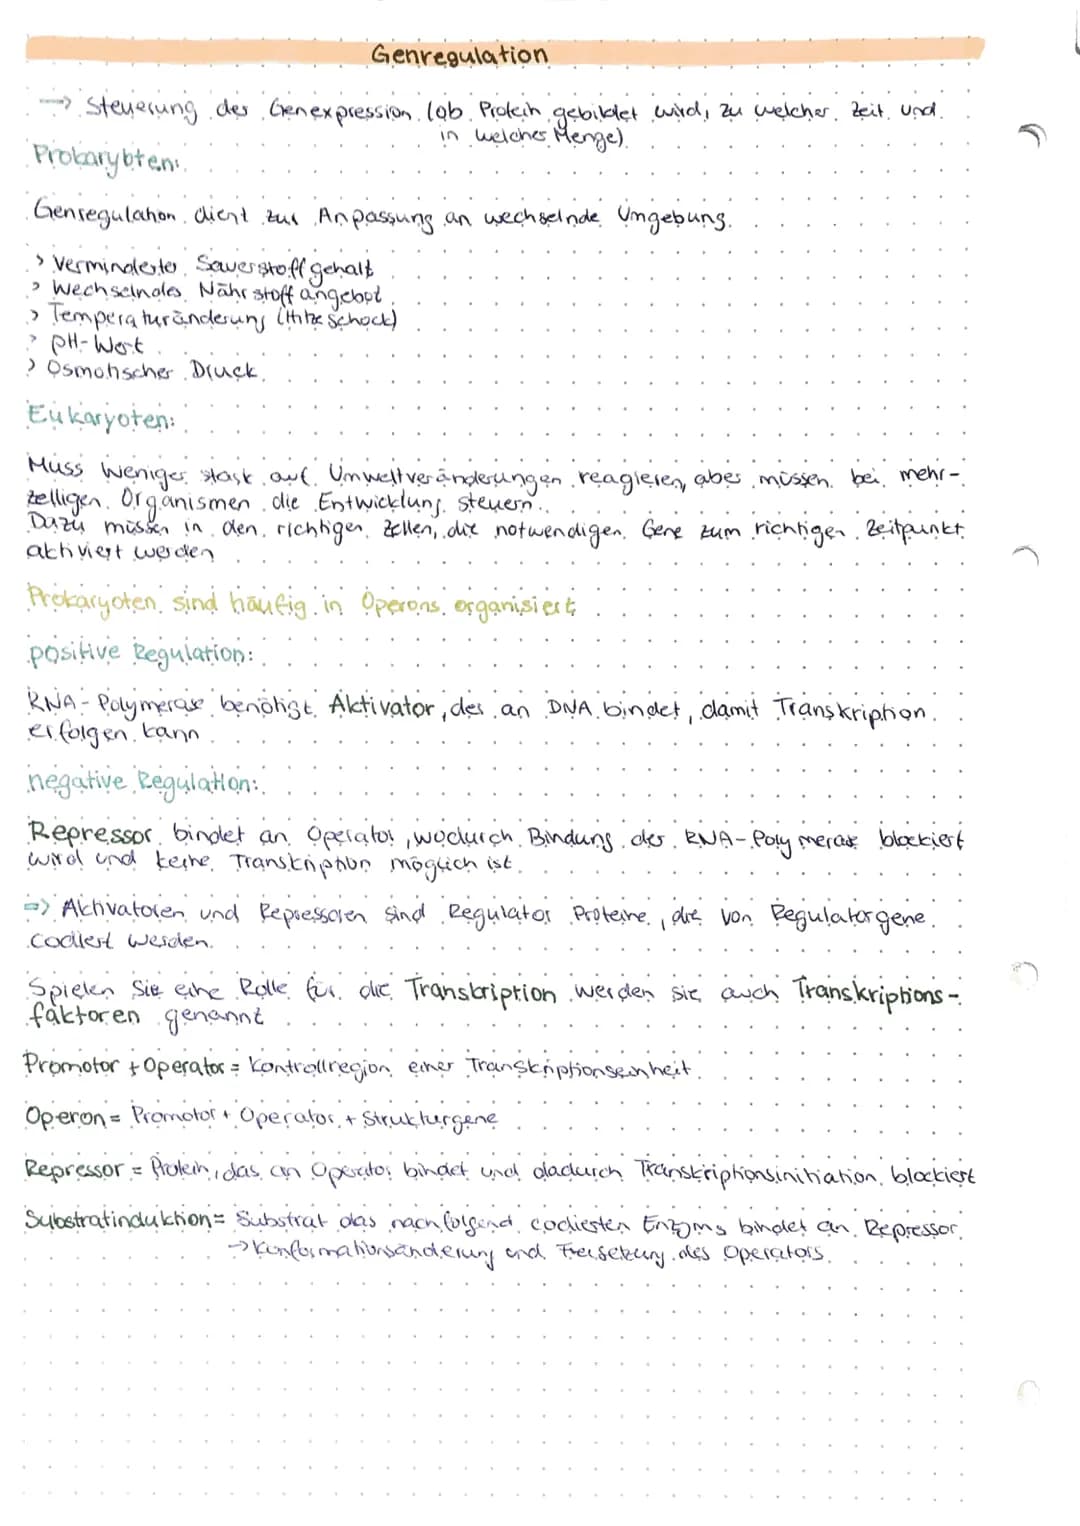 Genregulation
→ Steuerung der Genexpression (ob Protein gebildet wird, zu welcher Zeit und
in welcher Menge)
Prokaryoten:
Genregulation dient zur Anpassung an wechselnde Umgebung.
> Verminderter Sauerstoffgehalt
> Wechselndes Nährstoffangebot
> Temperaturänderung (Hitzeschock)
> pH-Wert
> Osmotischer Druck
Eukaryoten:
Muss weniger stark auf Umweltveränderungen reagieren, aber müssen bei mehr-
zelligen Organismen die Entwicklung steuern.
Dazu müssen in den richtigen Zellen, die notwendigen Gene zum richtigen Zeitpunkt
aktiviert werden
Prokaryoten sind häufig in Operons organisiert
positive Regulation:
RNA-Polymerase benötigt Aktivator, der an DNA bindet, damit Transkription
erfolgen kann
negative Regulation:
Repressor bindet an Operator, wodurch Bindung der RNA-Polymerase blockiert
wird und keine Transkription möglich ist.
=> Aktivatoren und Repressoren sind Regulator Proteine, die von Regulatorgene
codiert werden.
Spielen Sie eine Rolle für die Transkription werden sie auch Transkriptions-
faktoren genannt
Promotor + Operator = Kontrollregion einer Transkriptionseinheit
Operon = Promotor + Operator + Strukturgene
Repressor = Protein, das an Operator bindet und dadurch Transkriptionsinitiation blockiert
Substratinduktion = Substrat das nachfolgend codierten Enzyms bindet an Repressor
→ Konformationsänderung und Freisetzung des Operators.